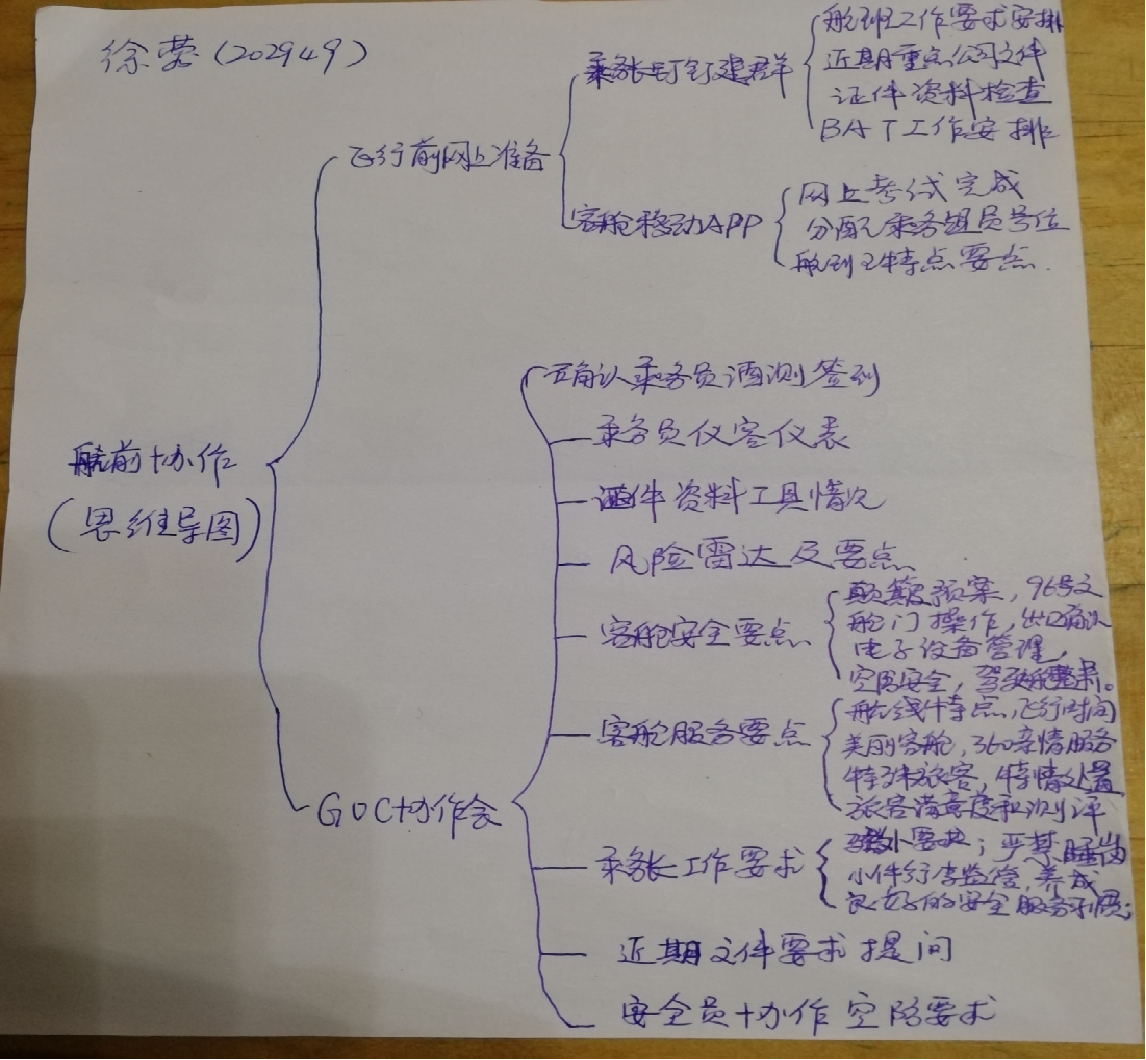 徐莹(202949)
乘务长钉钉建群
航班工作要求安排
近期重点公司文件
证件资料检查
BAT工作安排
飞行前网上准备
客舱移动APP
网上考试完成
分配乘务组员号位
航班特点要点.
航前协作
(思维导图)
GOC协作会
确认乘务员酒测签到
乘务员仪容仪表
证件资料工具情况
风险雷达及要点
客舱安全要点
颠簸预案,96号文
舱门操作,出口确认
电子设备管理,
空防安全,驾驶舱。
客舱服务要点
航线特点,飞行时间
美丽客舱,360亲情服务
特殊旅客,特情处置
旅客满意度和测评
乘务长工作要求
要求;严禁睡岗
小件行李监管,养成
良好的安全服务习惯;
近期文件要求提问
安全员协作空防要求